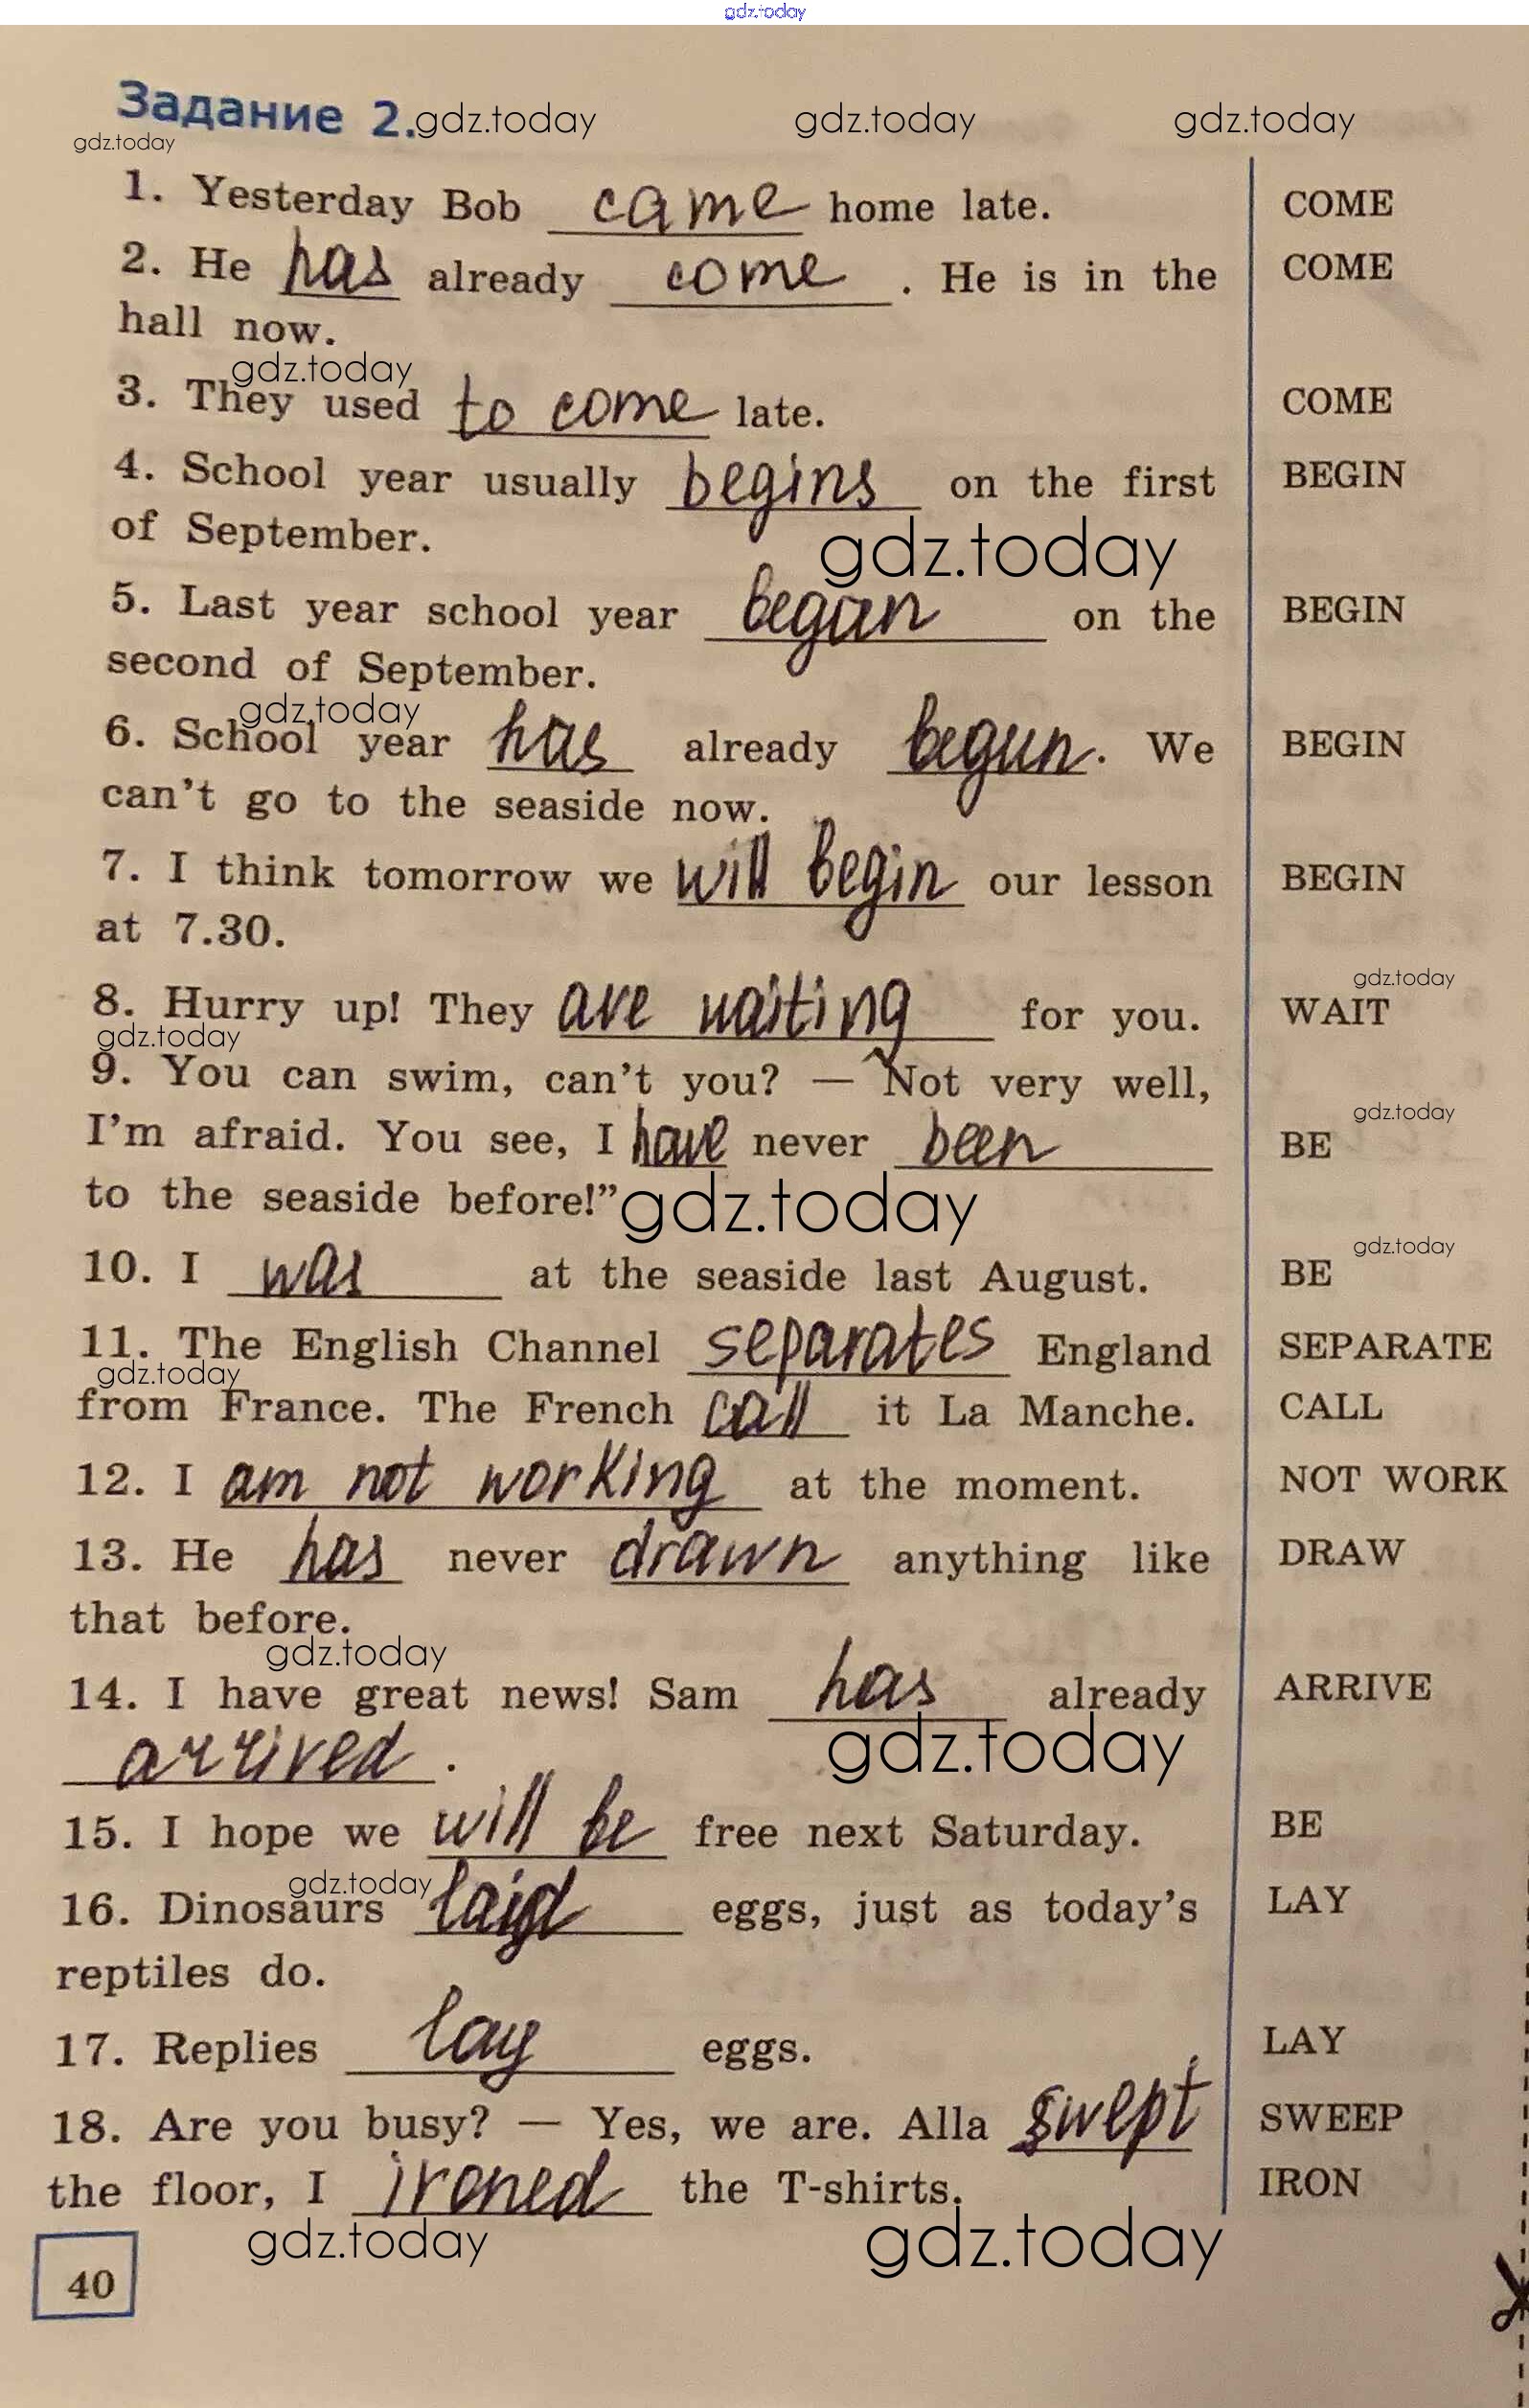 gdz.today
Задание 2. gdz.today gdz.today gdz.today
gdz.today
1. Yesterday Bob came home late. COME
2. He has already come. He is in the COME
hall now.
gdz.today
3. They used to come late. COME
4. School year usually begins on the first BEGIN
of September.
gdz.today
5. Last year school year began on the BEGIN
second of September.
gdz.today
6. School year has already begun. We BEGIN
can't go to the seaside now.
7. I think tomorrow we will begin our lesson BEGIN
at 7.30.
gdz.today
8. Hurry up! They are waiting for you. WAIT
gdz.today
9. You can swim, can't you? — Not very well,
gdz.today
I'm afraid. You see, I have never been BE
to the seaside before!” gdz.today
gdz.today
10. I was at the seaside last August. BE
11. The English Channel separates England SEPARATE
gdz.today
from France. The French call it La Manche. CALL
12. I am not working at the moment. NOT WORK
13. He has never drawn anything like DRAW
that before.
gdz.today
14. I have great news! Sam has already ARRIVE
arrived. gdz.today
15. I hope we will be free next Saturday. BE
gdz.today
16. Dinosaurs laid eggs, just as today's LAY
reptiles do.
17. Replies lay eggs. LAY
18. Are you busy? — Yes, we are. Alla swept SWEEP
the floor, I ironed the T-shirts. IRON
gdz.today gdz.today
40